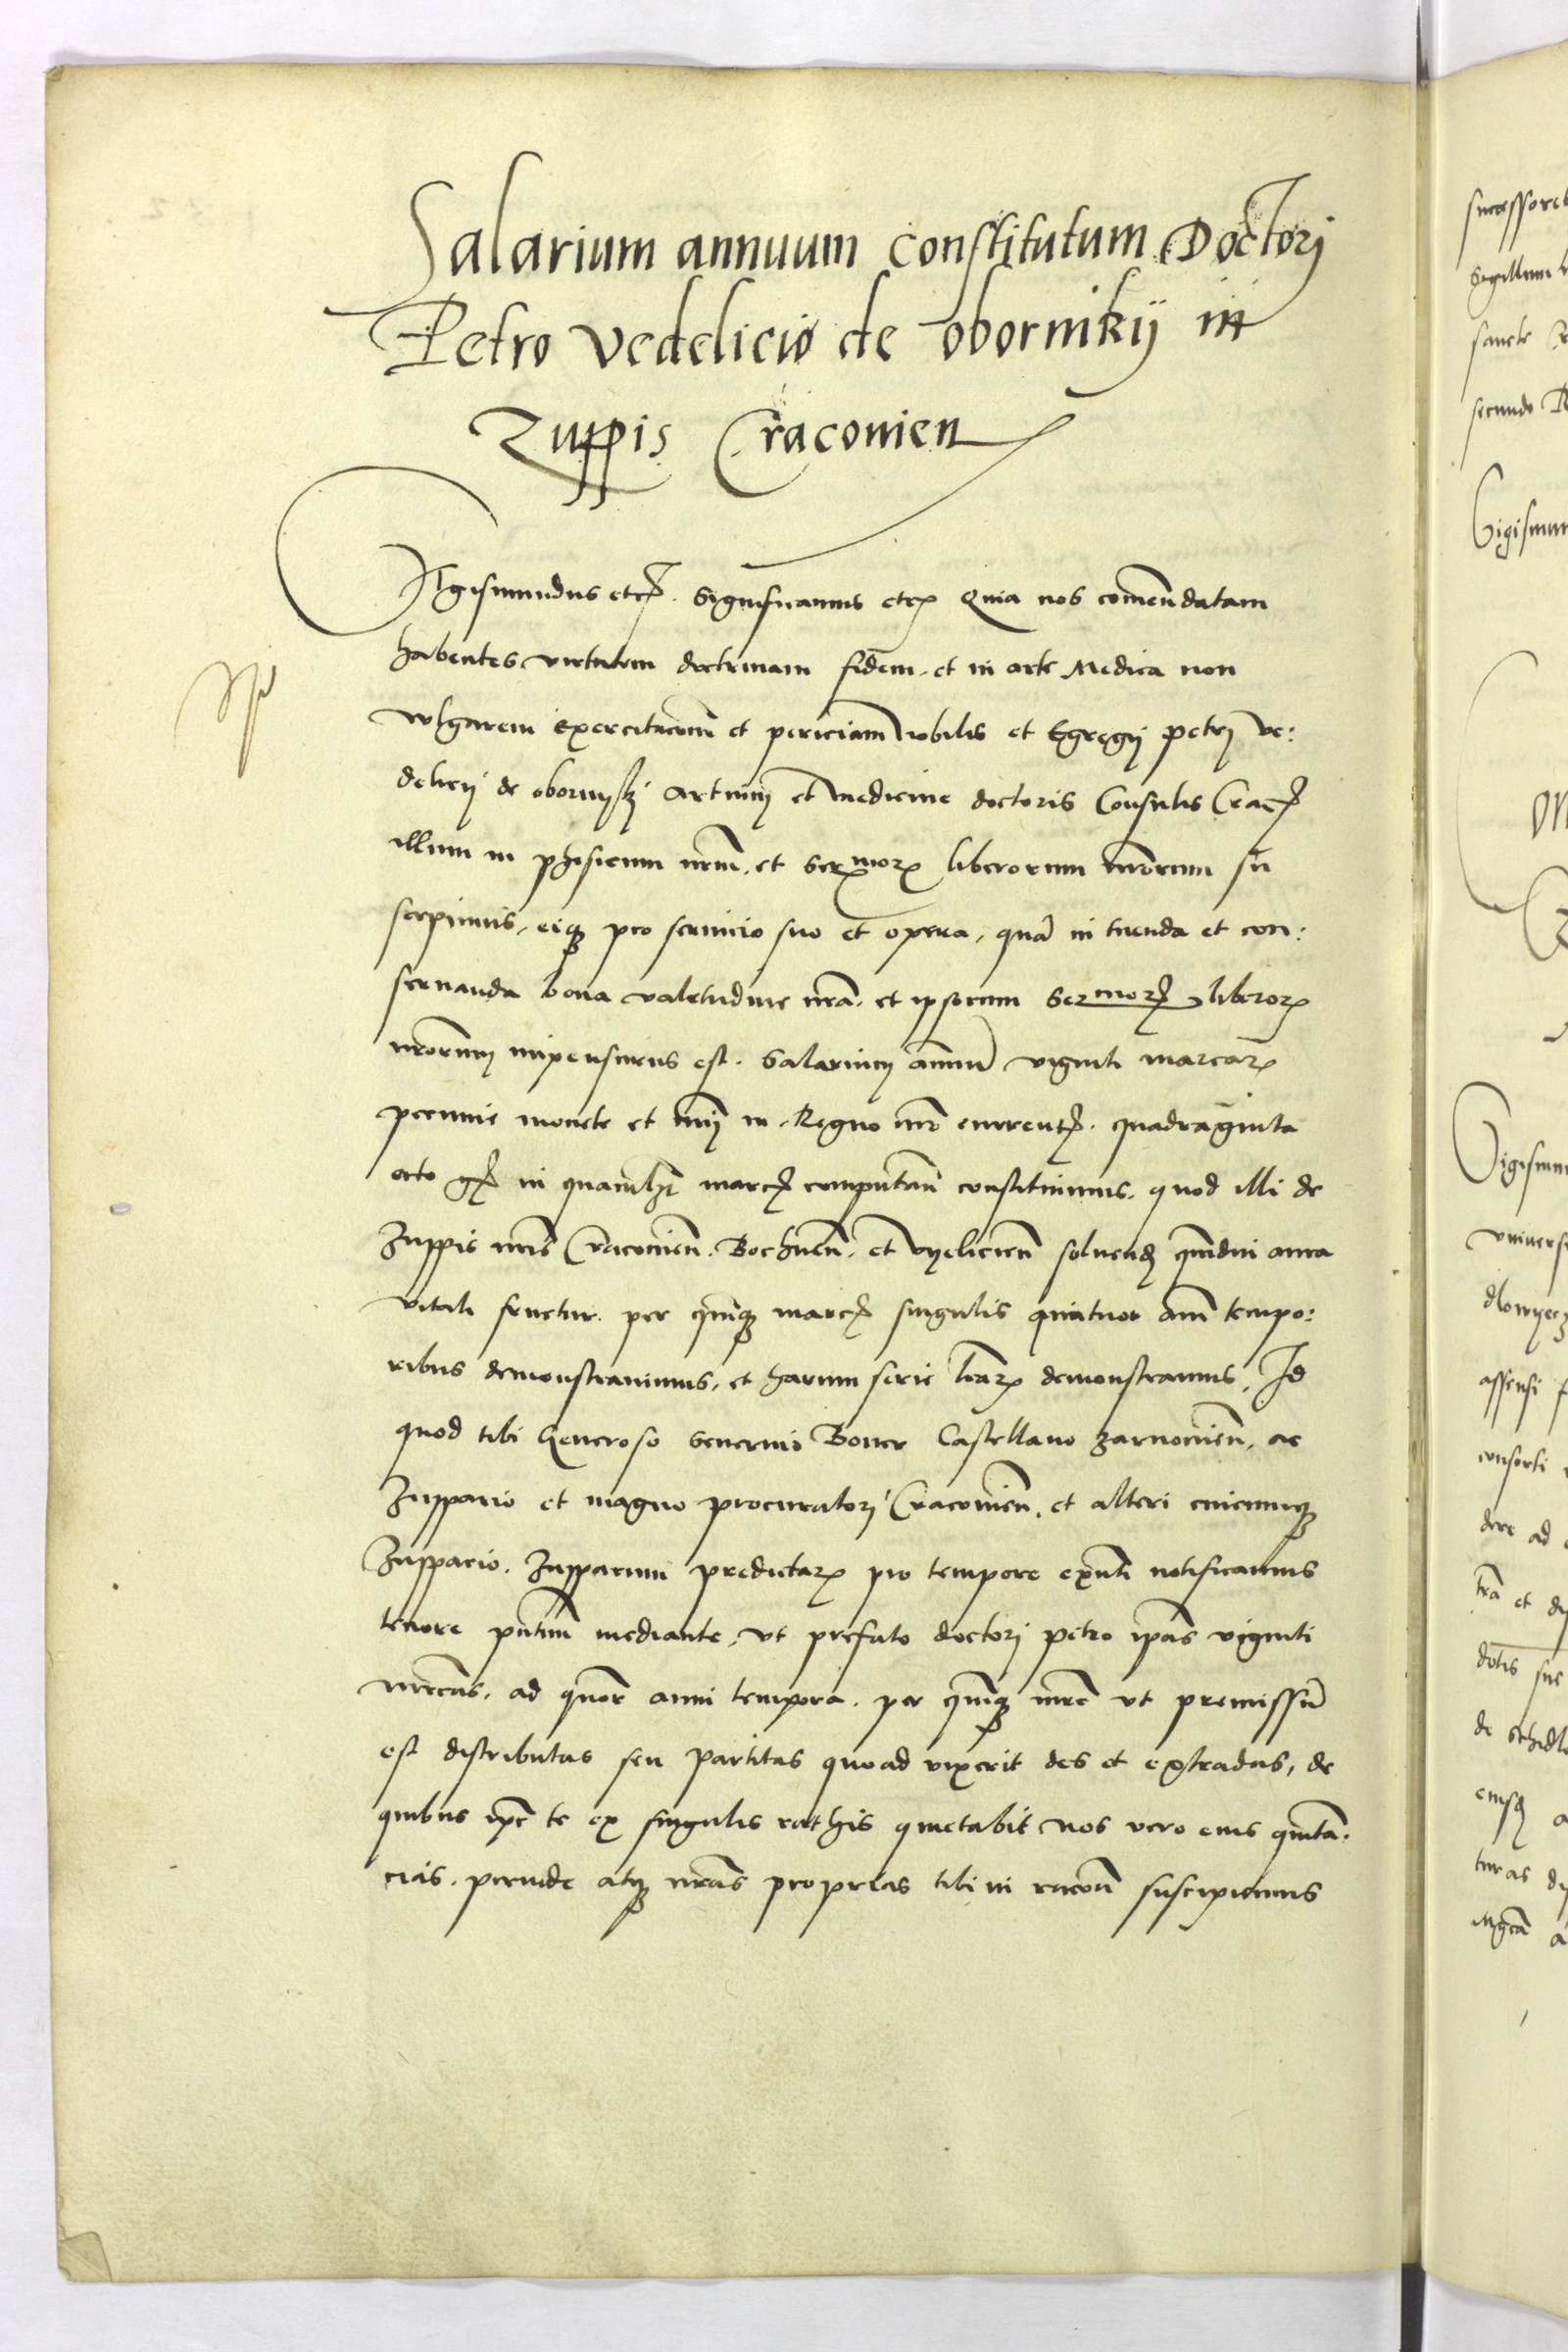 Salarium annuum constitutum Doctori
Petro Vedelicio de obornikij in
Zuppis Craconien
Sigismundus etc. Significamus etc Quia nos comendatam
habentes virtutem doctrinam fidem. et in arte Medica non
vulgarem Exercitacionem et periciam nobilis et Egregij petrj ve:
delicij de obornyky artium et medicine doctoris Consulis Crac
illum in phisicum nrm. et Sermor liberorum nrorum su
scepimus, eiq pro servicio suo et opera, quam in tuenda et con:
servanda bona valetudine nra. et ipsorum Sermor liberor
nrorum impensurus est. Salarium annuum viginti marcar
pecunie monete et nui in Regno nro currentis. quadraginta
octo gr in quamlibet marcam computan constituimus. quod illi de
Zuppis nris Craconien. Bochnen. et vyelicien solvend quamdiu aura
vitali fruetur. per quinq marcas singulis quatuor anni tempo:
ribus demonstravimus. et harum serie lrar demonstramus, Id
quod tibi Generoso Severino Boner Castellano Zarnovien, ac
Zuppario et magno procuratori Craconien. et alteri cuicumq
Zuppario. Zupparum predictar pro tempore exnti notificamus
tenore pntium mediante, vt prefato doctori petro ipas viginti
mrcas. ad quor anni tempora. per quinq mrc vt premissum
est distributas seu partitas quoad vixerit des et extradas, de
quibus ipe te ex singulis rathis quietabit nos vero eius quita.
cias. perinde atq nras proprias tibi in racon suscipiemus